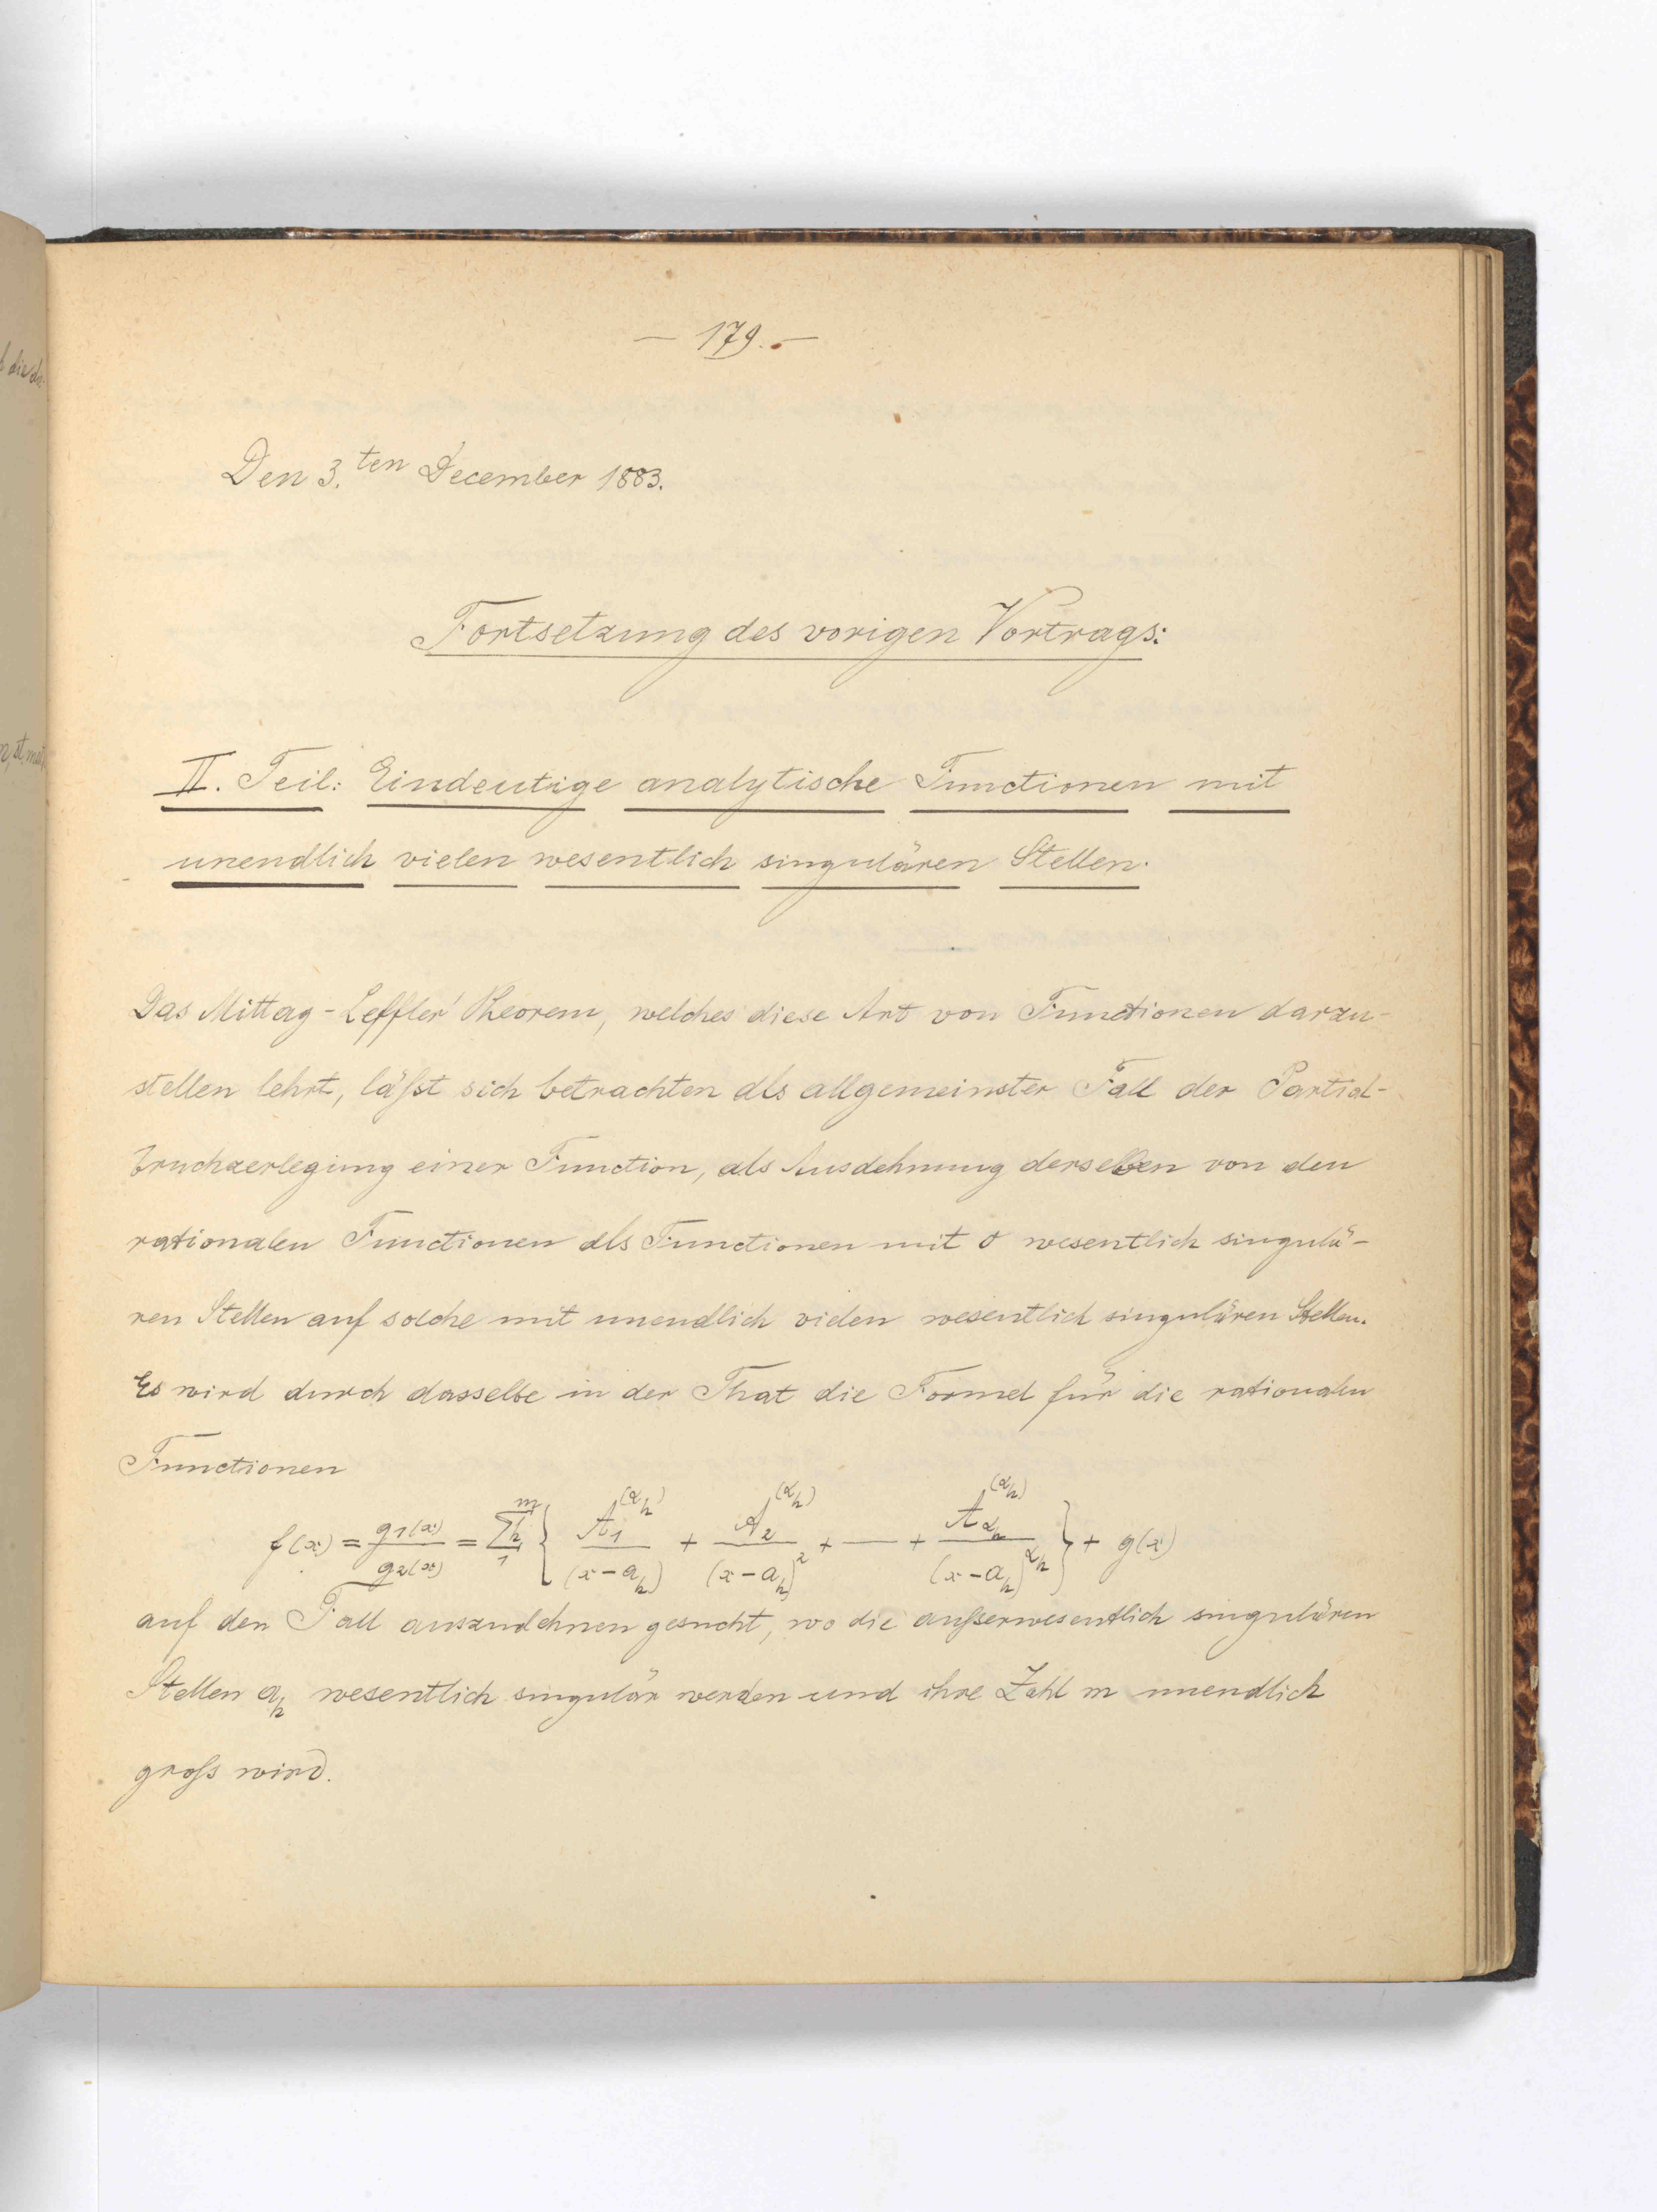 — 179. —
Den 3.ten December 1883.
Fortsetzung des vorigen Vortrags:
II. Teil: Eindeutige analytische Functionen mit
unendlich vielen wesentlich singulären Stellen.
Das Mittag-Leffler' Theorem, welches diese Art von Functionen darzu-
stellen lehrt, läßt sich betrachten als allgemeinster Fall der Partial-
bruchzerlegung einer Function, als Ausdehnung derselben von den
rationalen Functionen als Functionen mit 0 wesentlich singulä-
ren Stellen auf solche mit unendlich vielen wesentlich singulären Stellen.
Es wird durch dasselbe in der That die Formel für die rationalen
Functionen
f(x) = g₁(x)/g₂(x) = Σₕ₁ᵐ { A₁^(αₕ)/(x-aₕ) + A₂^(αₕ)/(x-aₕ)² + — + A_αₕ^(αₕ)/(x-aₕ)^αₕ } + g(x)
auf den Fall auszudehnen gesucht, wo die außerwesentlich singulären
Stellen aₕ wesentlich singulär werden und ihre Zahl m unendlich
groß wird.